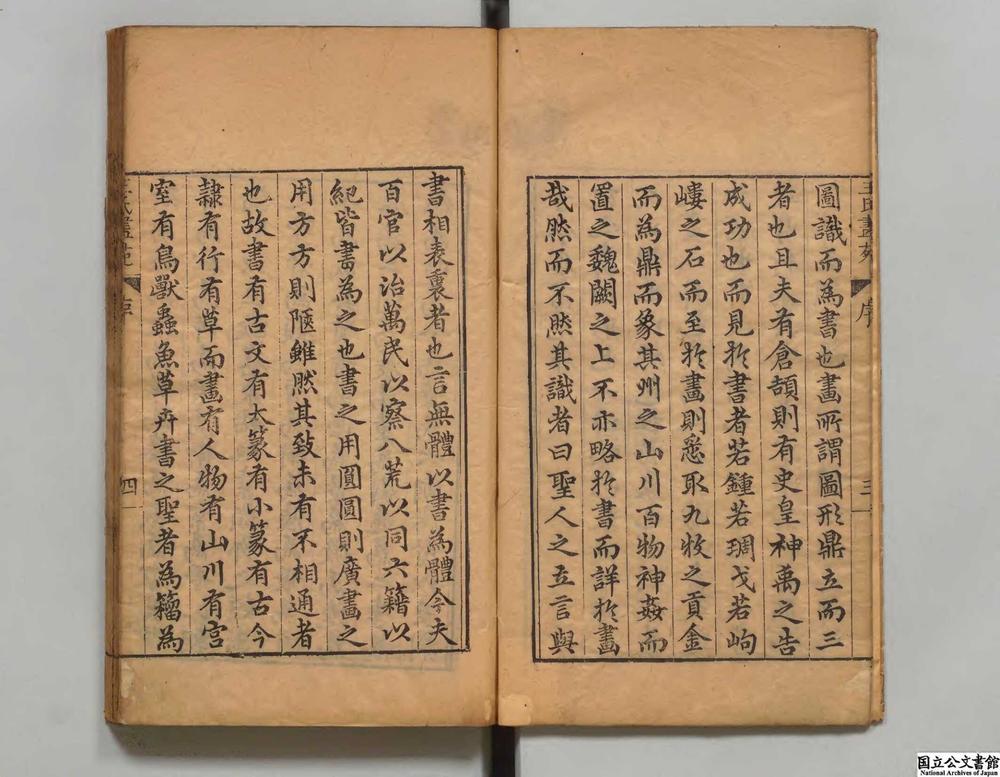 王氏畫苑 序 三
圖識而為書也畫所謂圖形鼎立而三
者也且夫有倉頡則有史皇神禹之告
成功也而見於書者若鍾若琱戈若岣
嶁之石而至於畫則悉取九牧之貢金
而為鼎而象其州之山川百物神姦而
置之魏闕之上不亦略於書而詳於畫
哉然而不然其識者曰聖人之立言與
書相表裏者也言無體以書為體今夫
百官以治萬民以察八荒以同六籍以
紀皆書為之也書之用圓圓則廣畫之
用方方則隘雖然其致未有不相通者
也故書有古文有大篆有小篆有古今
隸有行有草而畫有人物有山川有宮
室有鳥獸蟲魚草卉書之聖者為籀為
王氏畫苑 序 四
国立公文書館
National Archives of Japan